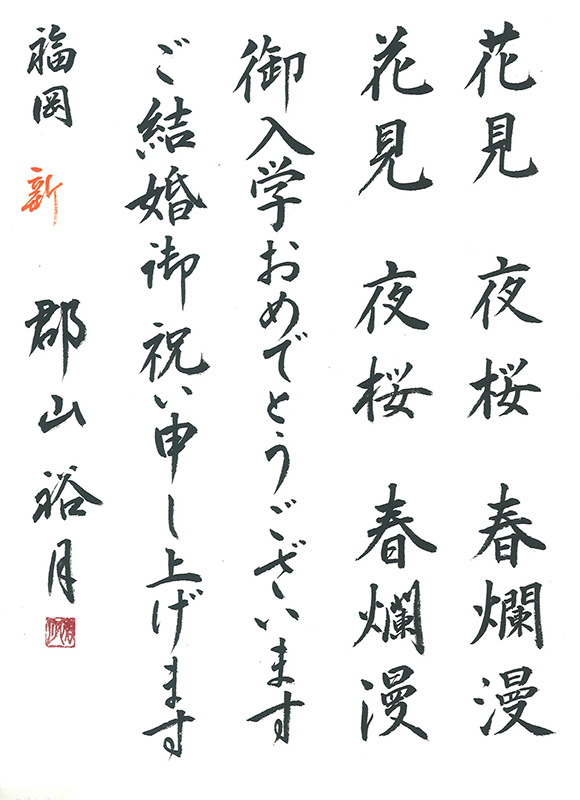 花見 夜桜 春爛漫
花見 夜桜 春爛漫
御入学おめでとうございます
ご結婚御祝い申し上げます
福岡 新 郡山裕月